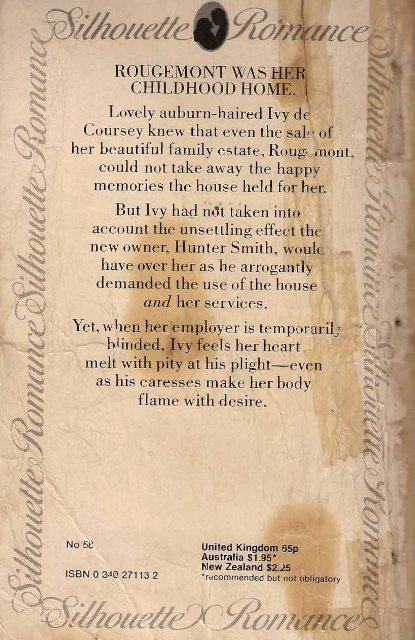 Silhouette Romance
ROUGEMONT WAS HER
CHILDHOOD HOME.
Lovely auburn-haired Ivy de
Coursey knew that even the sale of
her beautiful family estate, Rougemont,
could not take away the happy
memories the house held for her.
But Ivy had not taken into
account the unsettling effect the
new owner, Hunter Smith, would
have over her as he arrogantly
demanded the use of the house
and her services.
Yet, when her employer is temporarily
blinded, Ivy feels her heart
melt with pity at his plight—even
as his caresses make her body
flame with desire.
No 58
ISBN 0 340 27113 2
United Kingdom 65p
Australia $1.95*
New Zealand $2.25
*recommended but not obligatory
Silhouette Romance
Silhouette Romance Silhouette Romance
Silhouette Romance Silhouette Romance